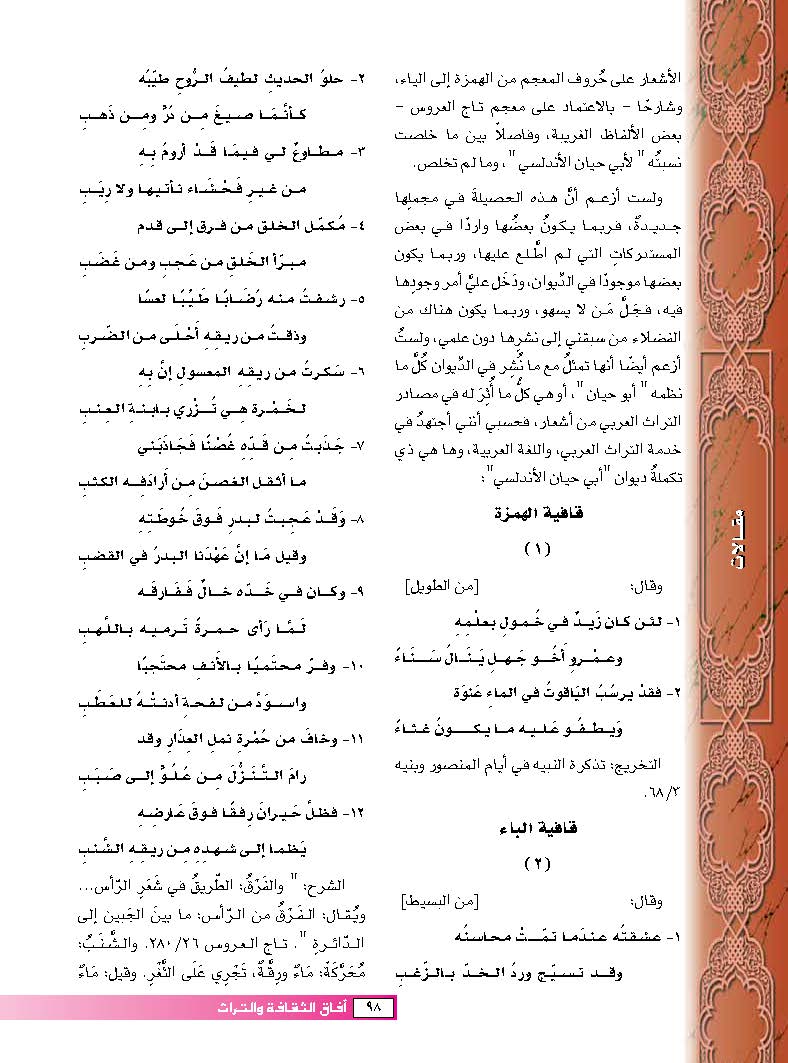 الأشعار على حُروف المعجم من الهمزة إلى الياء،
وشارحًا – بالاعتماد على معجم تاج العروس –
بعض الألفاظ الغريبة، وفاصلاً بين ما خلصت
نسبتُه "لأبي حيان الأندلسي"، وما لم تخلص.
ولست أزعم أنَّ هذه الحصيلةَ في مجملها
جديدةٌ، فربما يكونُ بعضُها واردًا في بعض
المستدركاتِ التي لم اطَّلع عليها، وربما يكون
بعضها موجودًا في الدِّيوان، ودَخَل عليَّ أمر وجودِها
فيه، فجَلَّ مَن لا يسهو، وربما يكون هناك من
الفضلاء من سبقني إلى نشرِها دون علمي، ولستُ
أزعم أيضًا أنها تمثلُ مع ما نُشِر في الدِّيوان كُلَّ ما
نظمه "أبو حيان"، أو هي كلُّ ما أُثِرَ له في مصادر
التراث العربي من أشعار، فحسبي أنني أجتهدُ في
خدمة التراث العربي، واللغة العربية، وها هي ذي
تكملةُ ديوان "أبي حيان الأندلسي":
قافية الهمزة
(١)
وقال: [من الطويل]
١- لئن كان زَيدٌ في خُمولٍ بعلْمِهِ
وعمْروٍ أَخُو جَهلٍ يَنَالُ سَنَاءُ
٢- فقدْ يرسُبُ اليَاقوتُ في الماءِ عَنوَة
وَيطفُو عَليه ما يكونُ غثاءُ
التخريج: تذكرة النبيه في أيام المنصور وبنيه
٦٨/٣.
قافية الباء
(٢)
وقال: [من البسيط]
١- عشقتُه عندَما تمّتْ محاسنُه
وقد تسيّج وردُ الخدّ بالزّغبِ
٢- حلوُ الحديثِ لطيفُ الرُّوحِ طيّبُه
كأنَّمَا صيغَ مِن دُرٍّ ومِن ذَهبِ
٣- مطاوعٌ لي فيمَا قَدْ أرومُ بِهِ
من غيرِ فَحْشَاء نأتيها ولا رِيَبِ
٤- مُكمّل الخلق من فرق إلى قدم
مبرّأ الخَلقِ من عَجبٍ ومن غَضَبِ
٥- رشفتُ منه رُضَابًا طَيّبًا لعسًا
وذقتُ من ريقِهِ أَحْلَى من الضّربِ
٦- سَكرتُ من ريقِهِ المعسولِ إنَّ بِهِ
لخَمْرة هِي تُزْري بابنةِ العِنبِ
٧- جَذَبتُ مِن قَدِّهِ غُصْنًا فَجَاذَبَني
ما أثقل الغصنَ مِن أَرادَفِه الكثبِ
٨- وَقَدْ عَجِبتُ لبدرٍ فَوقَ خُوطَتِهِ
وقيل مَا إنَّ عَهْدَنا البدرُ في القضبِ
٩- وكان في خَدّه خالٌ فَفَارقَه
لَمَّا رَأى حمرةً تَرميه باللَّهبِ
١٠- وفرّ محتَميًا بالأنفِ محتَجبًا
واسودَّ من لفحةٍ أدنتْهُ للعَطَبِ
١١- وخافَ من حُمْرةٍ نملِ العِذَارِ وقد
رامَ التَّنَزُّلَ مِن عُلُوٍّ إلى صَبَبِ
١٢- فظلَّ حَيرانَ رِفقًا فوقَ عَارضِهِ
يَظما إلى شهدِهِ مِن ريقِهِ الشَّنبِ
الشرح: "والفَرْقُ: الطّريقُ في شَعَرِ الرّأس...
ويُقال: الفَرْقُ من الرّأس: ما بينَ الجَبين إلى
الدّائرةِ". تاج العروس ٢٨٠/٢٦. والشَّنَبُ:
مُحَرَّكَة: مَاءٌ ورِقَّةٌ، تَجْرِي عَلَى الثَّغْرِ. وقيل: مَاءُ
مقالات
٩٨ آفاق الثقافة والتراث